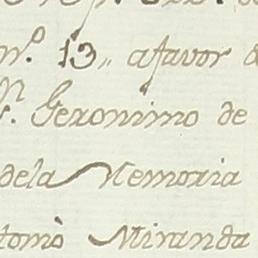 nº. 13,, a favor
n. Geronimo de
dela Memoria
tomò Miranda